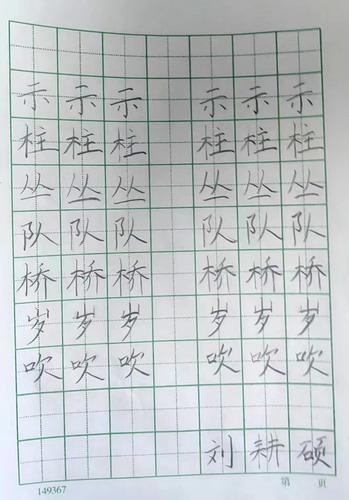 示示示 示示示
柱柱柱 柱柱柱
丛丛丛 丛丛丛
队队队 队队队
桥桥桥 桥桥桥
岁岁岁 岁岁岁
吹吹吹 吹吹吹
刘耕硕
149367 第 页